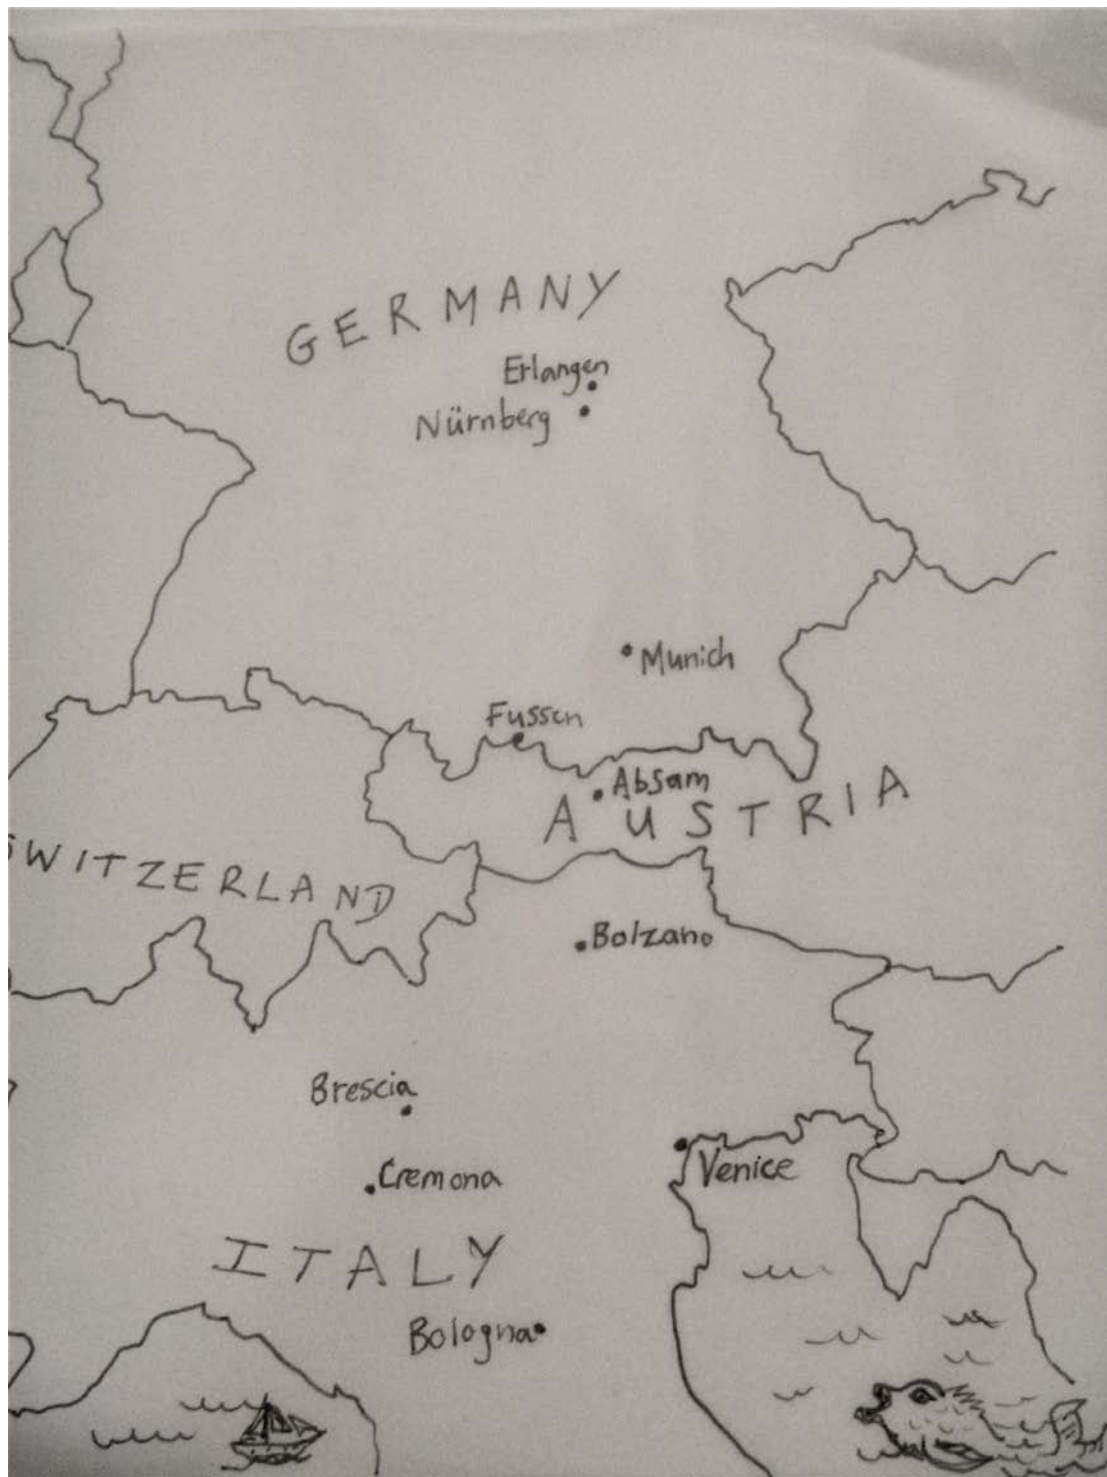 GERMANY
Erlangen
Nürnberg
Munich
Fussen
Absam
AUSTRIA
SWITZERLAND
Bolzano
Brescia
Venice
Cremona
ITALY
Bologna